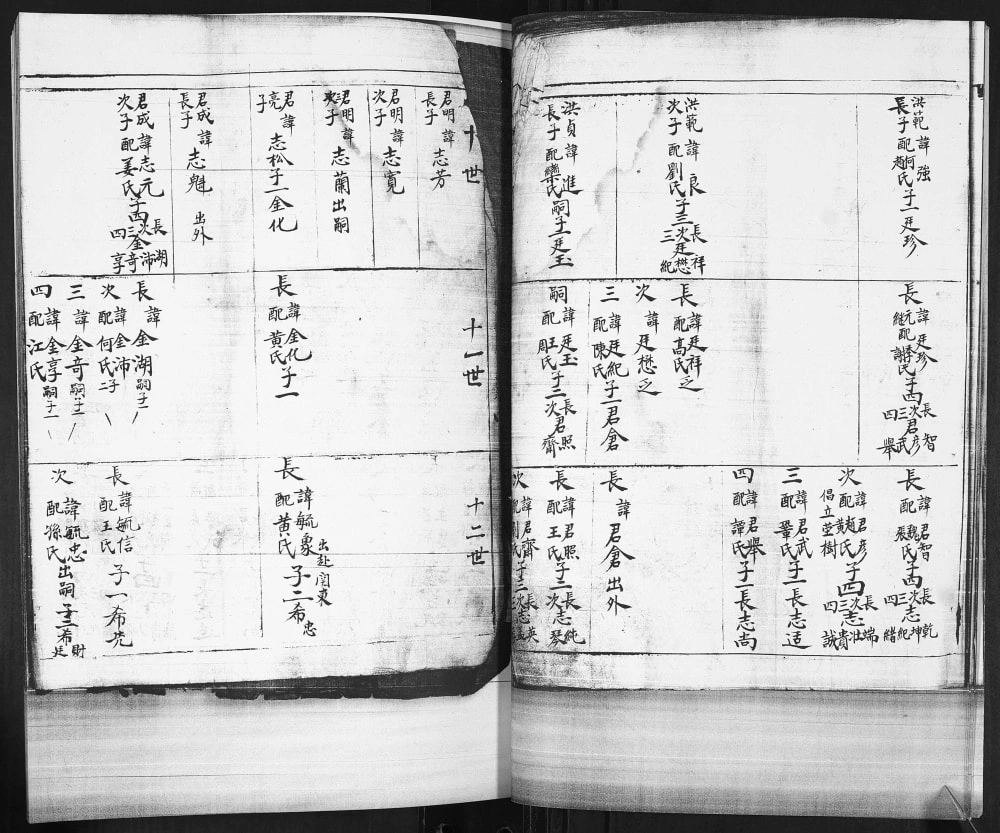 洪範諱強
長子配何趙氏子一廷珍
洪範諱良
次子配劉氏子三長廷祥次廷懋三廷紀
洪貞諱進
長子配欒氏嗣子一廷玉
長諱廷珍
元配
繼配謝氏子四長君智次君彦三君武四君舉
長諱廷祥之
配高氏
次諱廷懋之
三諱廷紀子一君倉
配陳氏
嗣諱廷玉子二長君照次君齋
配王氏周氏
長諱君智
配魏氏張氏子四長志乾次志坤三志紀四志緒
次諱君彦
配趙氏黄氏子四長志端次志壯三志貴四志誠
倡立堂樹
三諱君武子一長志适
配鞏氏
四諱君舉子一長志尚
配譚氏
長諱君倉出外
長諱君照子二長志純次志琴
配王氏
次諱君齋子三長志英次志
配劉氏
十世
君明諱志芳
長子
君明諱志寬
次子
君明諱志蘭出嗣
君亮諱志松子一金化
子
君成諱志魁出外
長子
君成諱志元
次子配姜氏子四長金湖次金沛三金奇四金享
十一世
長諱金化子一
配黄氏
長諱金湖嗣子一
次諱金沛子二
配何氏
三諱金奇嗣子一
四諱金享嗣子一
配江氏
十二世
長諱毓象出赴関東
配黄氏子二希忠
長諱毓信子一希先
配王氏
次諱毓忠出嗣子二希財希廷
配孫氏